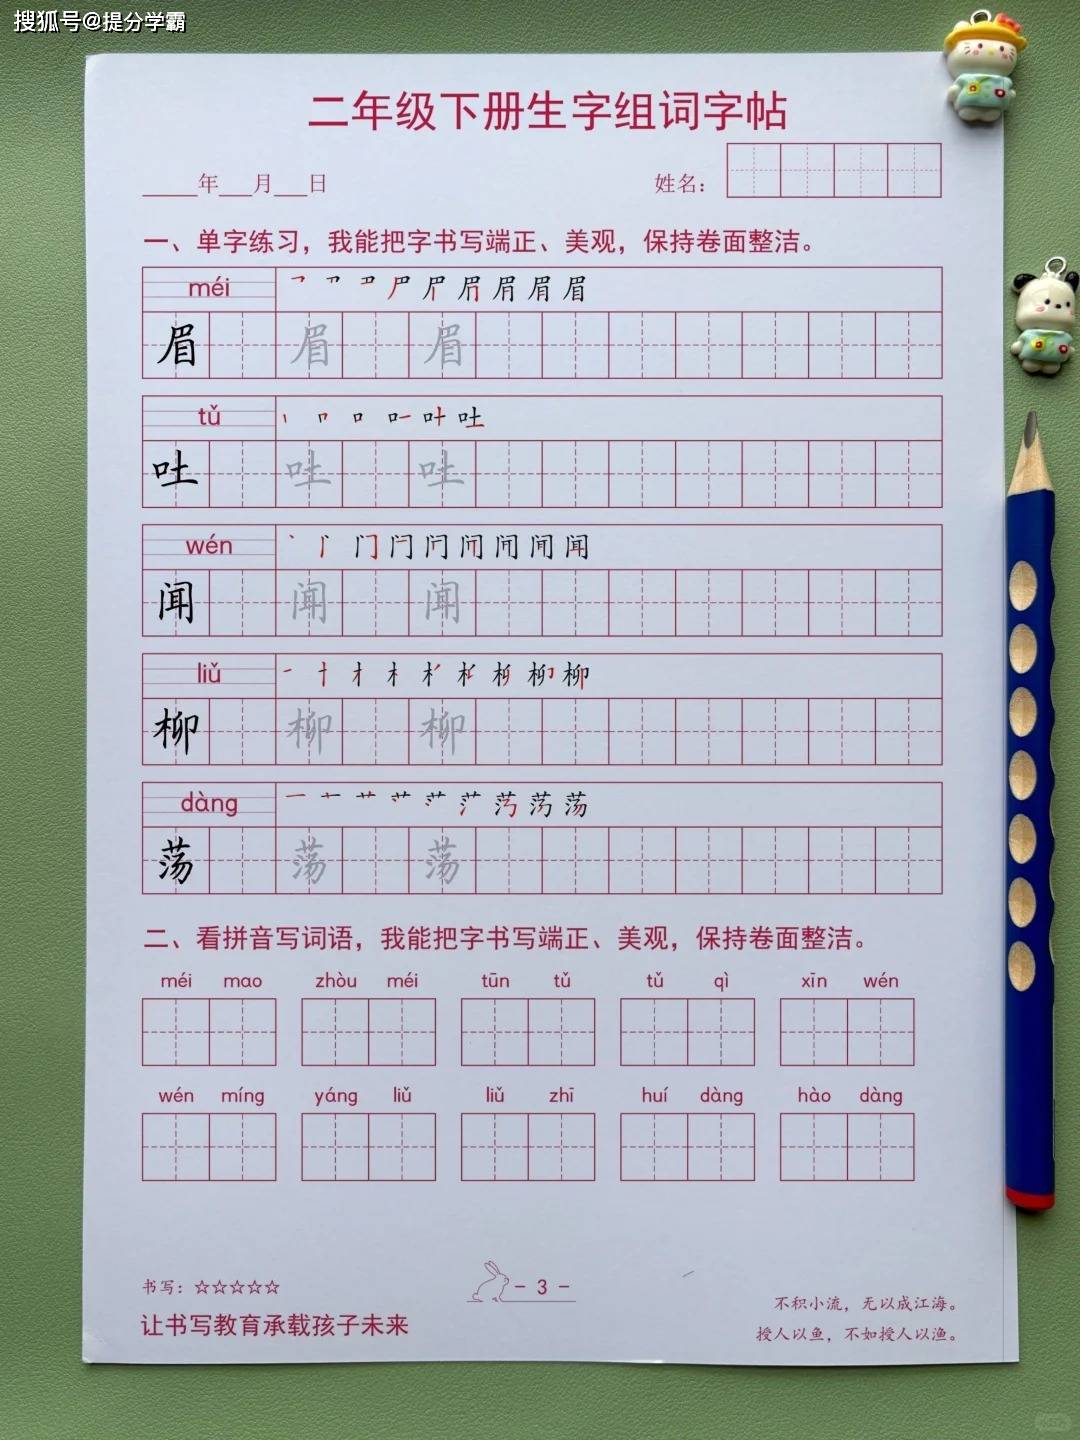 搜狐号@提分学霸
二年级下册生字组词字帖
_____年___月___日 姓名：
一、单字练习，我能把字书写端正、美观，保持卷面整洁。
méi
眉 眉 眉
tǔ
吐 吐 吐
wén
闻 闻 闻
liǔ
柳 柳 柳
dàng
荡 荡 荡
二、看拼音写词语，我能把字书写端正、美观，保持卷面整洁。
méi mao zhòu méi tūn tǔ tǔ qì xīn wén
wén míng yáng liǔ liǔ zhī huí dàng hào dàng
书写：☆☆☆☆☆ - 3 -
不积小流，无以成江海。
让书写教育承载孩子未来
授人以鱼，不如授人以渔。